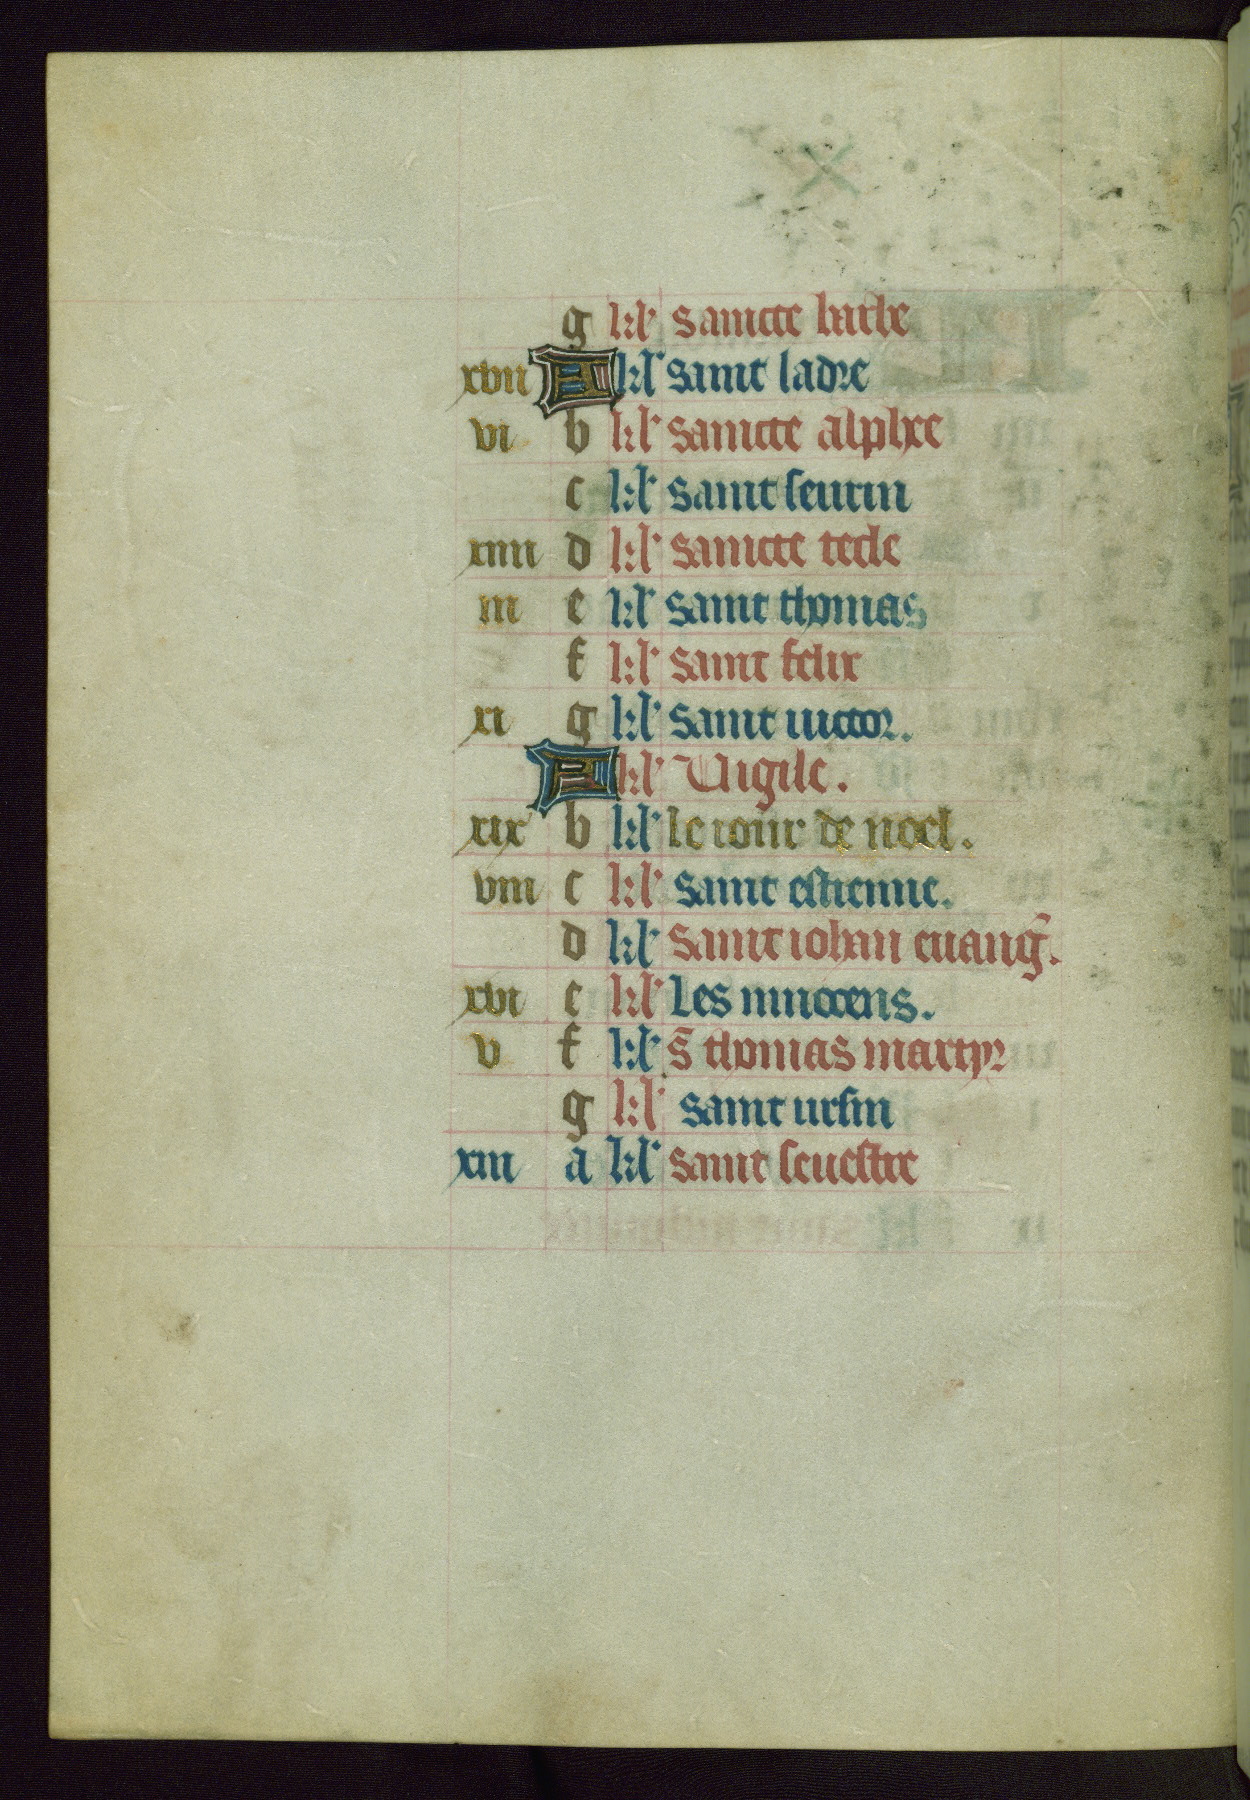 g kl' saincte barbe
xvii A kl' saint ladre
vi b kl' saincte alphee
c kl' saint seurin
xiiii d kl' saincte tecle
iii e kl' saint thomas
f kl' saint felix
xi g kl' saint uictor.
A kl' Vigile.
xix b kl' le iour de noel.
viii c kl' saint estienne.
d kl' saint iohan euang̃.
xvi e kl' Les innocens.
v f kl' s̃ thomas martyr
g kl' saint ursin
xiii a kl' saint seuestre